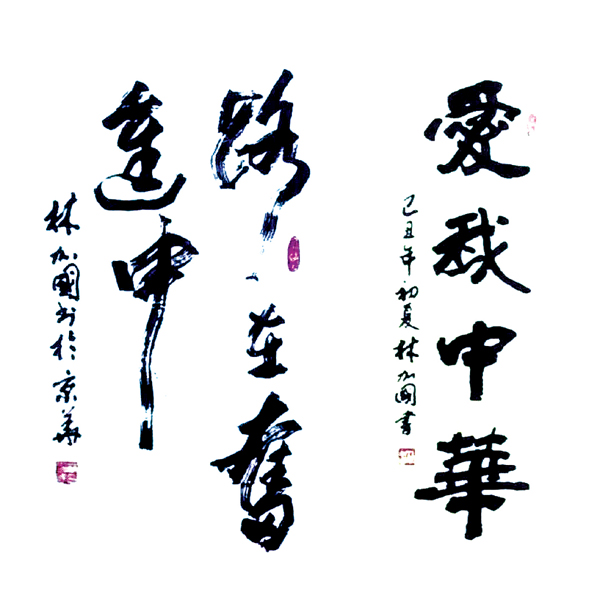 愛我中華
己丑年初夏林加國書
路在奮
進中
林加國书於京華